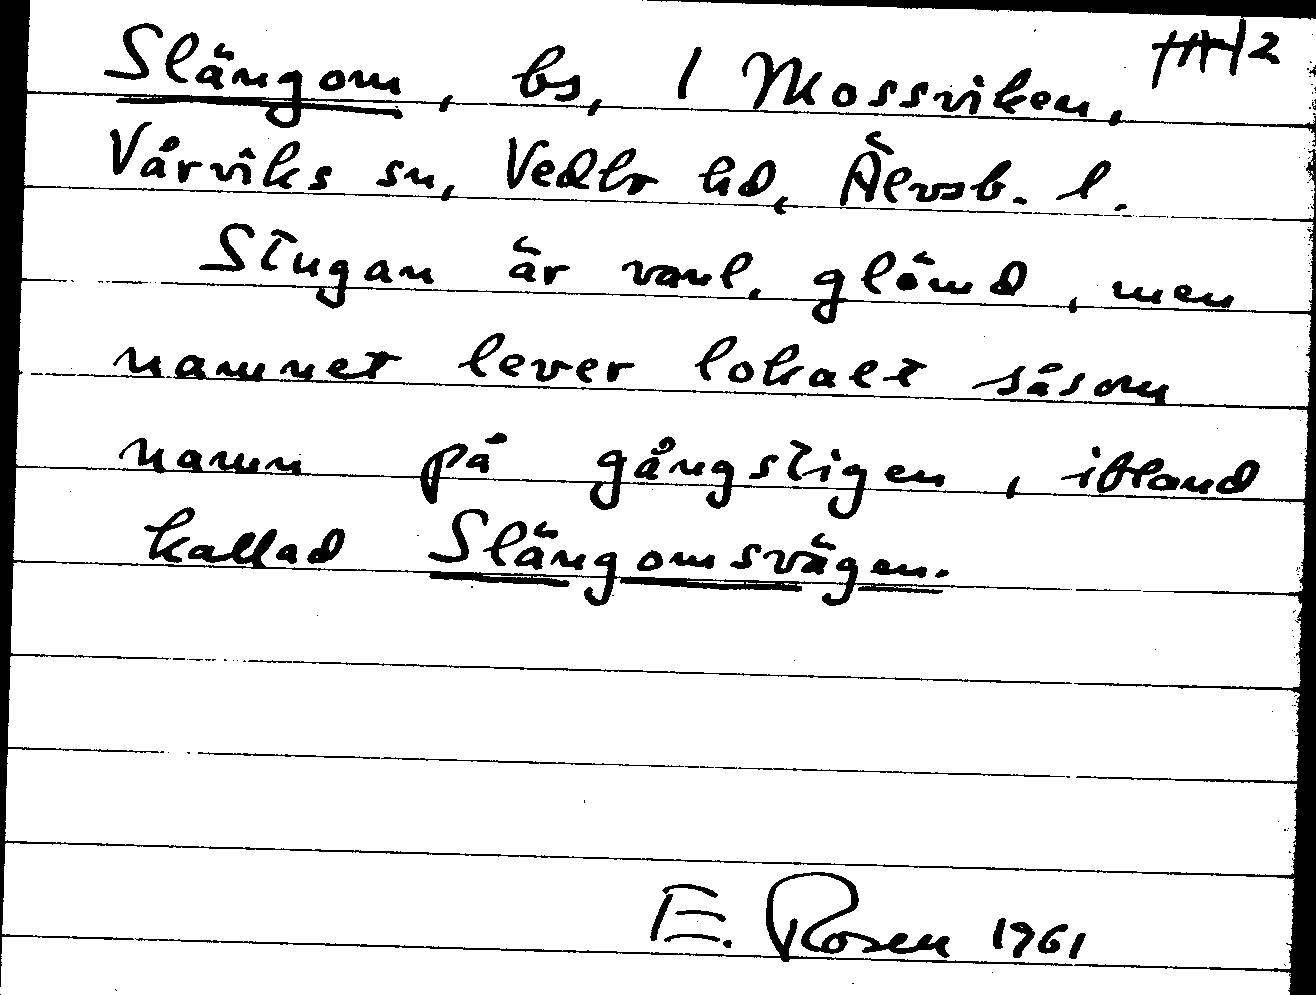 Slängom, bs, 1 Mossviken, 2
Vårviks sn, Vedbo hd, Älvsb. l.
Stugan är vanl. glömd, men
namnet lever lokalt såsom
namn på gångstigen, ibland
kallad Slängomsvägen.
E. Rosen 1961